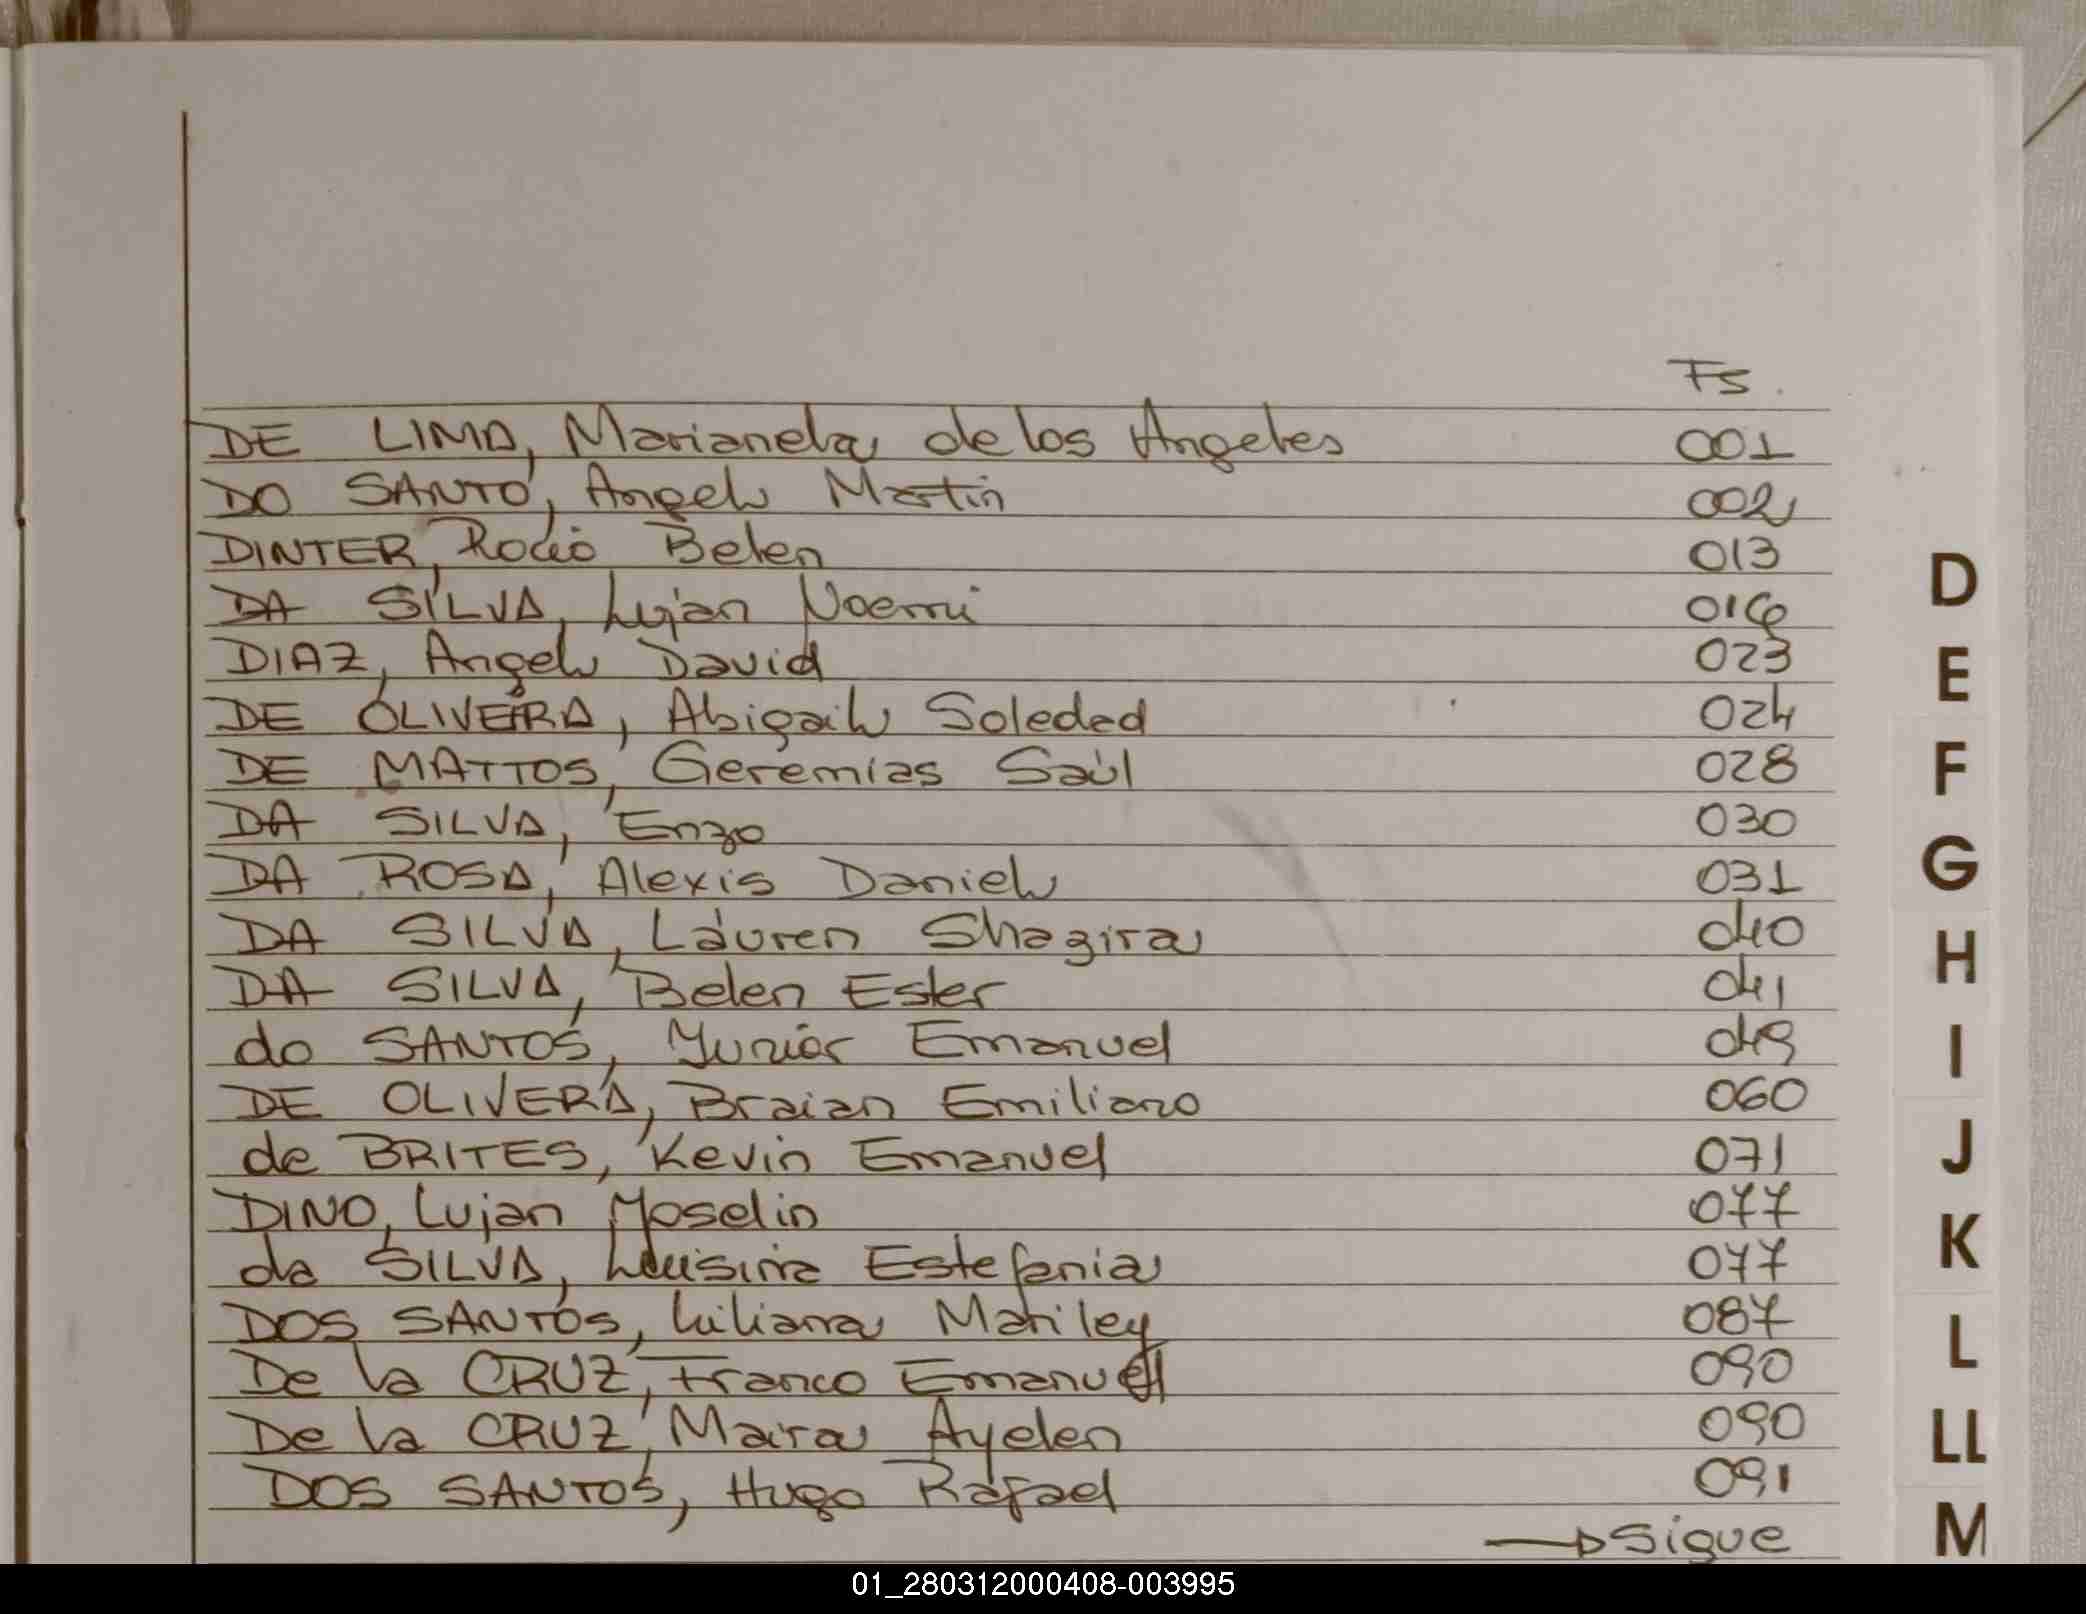 Fs.
DE LIMA, Marianela de los Angeles 001
DO SANTO, Angel Martin 002
DINTER, Rocio Belen 013
DA SILVA, Lujan Noemi 016
DIAZ, Angel David 023
DE OLIVEIRA, Abigail Soledad 024
DE MATTOS, Geremias Saúl 028
DA SILVA, Enzo 030
DA ROSA, Alexis Daniel 031
DA SILVA, Lauren Shagira 040
DA SILVA, Belen Ester 041
do SANTOS, Yunior Emanuel 049
DE OLIVERA, Braian Emiliano 060
de BRITES, Kevin Emanuel 071
DINO, Lujan Yoselin 077
da SILVA, Luisina Estefania 077
DOS SANTOS, Liliana Mariley 087
De la CRUZ, Franco Emanuel 090
De la CRUZ, Maira Ayelen 090
DOS SANTOS, Hugo Rafael 091
→ Sigue
D
E
F
G
H
I
J
K
L
LL
M
01_280312000408-003995